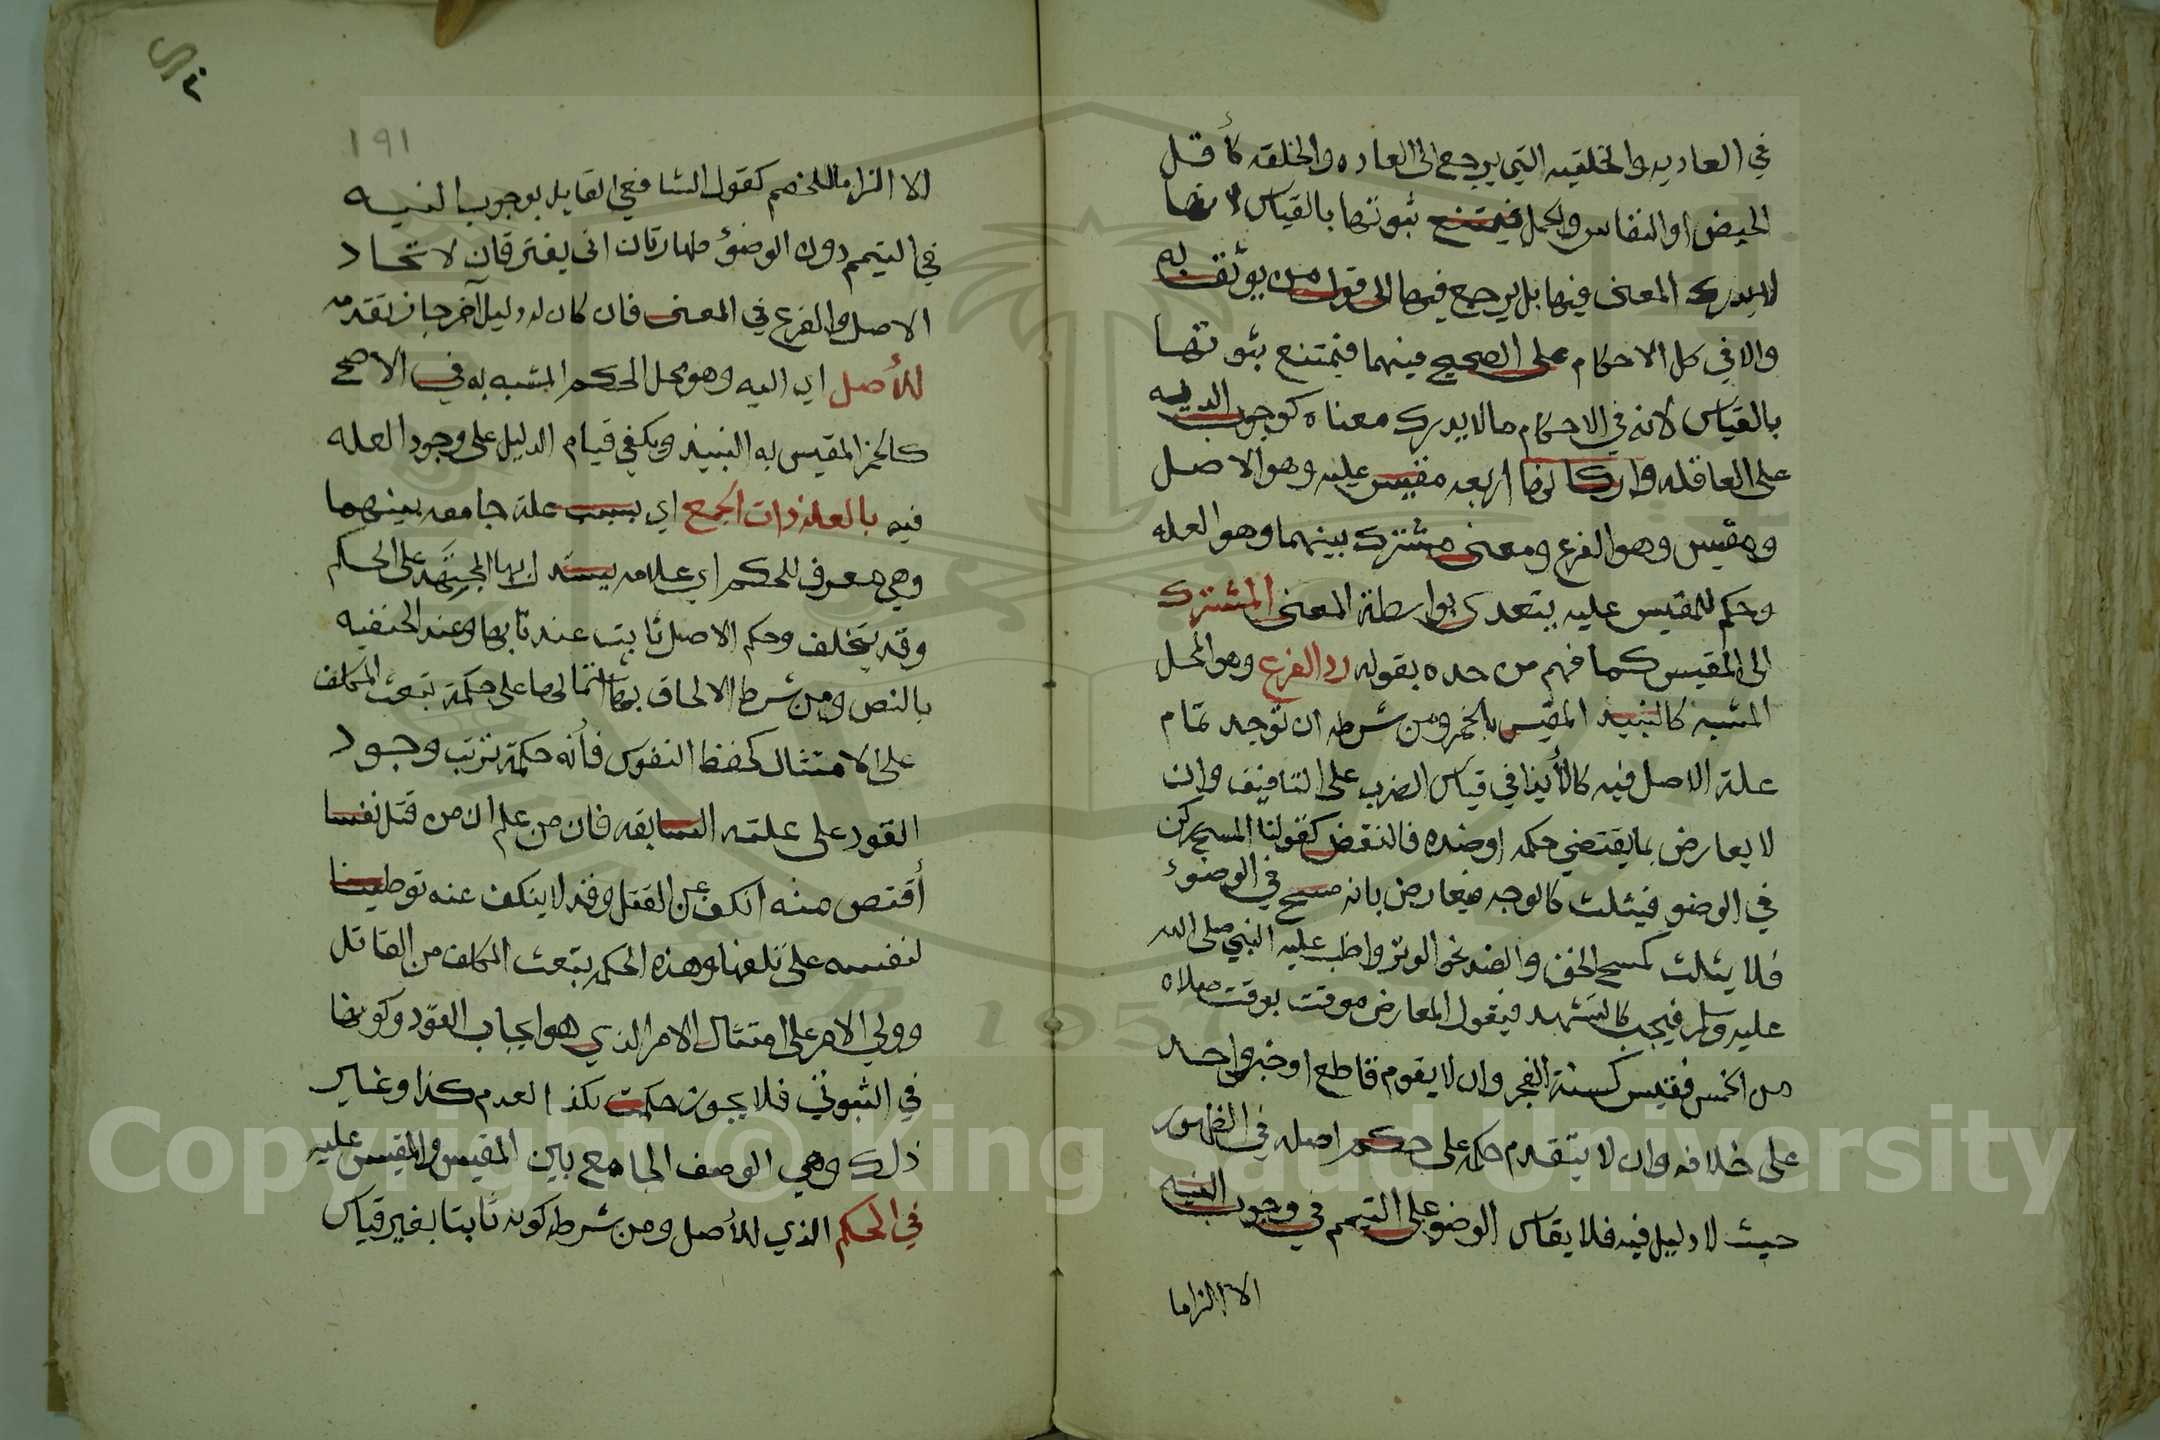 في العاديه والخلقيه التي يرجع الى العاده والخلقه كأقل
الحيض او النفاس والحمل فيمتنع ثبوتها بالقياس لانها
لا يدرك المعنى فيها بل يرجع فيها الى قول من يوثق به
والا في كل الاحكام على الصحيح فيهما فيمتنع ثبوتها
بالقياس لانه في الاحكام مالا يدرك معناه كوجوب الديه
على العاقله واركانها اربعه مقيس عليه وهو الاصل
ومقيس وهو الفرع ومعنى مشترك بينهما وهو العله
وحكم للمقيس عليه يتعدى بواسطة المعنى المشترك
الى المقيس كما فهم من حده بقوله رد الفرع وهو المحل
المشبه كالنبيذ المقيس بالخمر ومن شرطه ان توجد تمام
علة الاصل فيه كالأيذا في قياس الضرب على التافيف وان
لا يعارض بما يقتضي حكمه او ضده فالنقض كقولنا المسح ركن
في الوضو فيثلث كالوجه فيعارض بانه مسح في الوضوء
فلا يثلث كمسح الخف والضد نحو الوتر واظب عليه النبي صلى الله
عليه وسلم فيجب كالتشهد فيقول المعارض موقت بوقت صلاه
من الخمس فقيس كسنة الفجر وان لا يقوم قاطع او خبر واحد
على خلافه وان لا يتقدم حكمه على حكم اصله في الظهور
حيث لا دليل فيه فلا يقاس الوضو على التيمم في وجوب النيه
الا الزاما
١٩١
الا الزاما للخصم كقول الشافعي القايل بوجوب النيه
في التيمم دون الوضوء طهارتان انى يفترقان لاتحاد
الاصل والفرع في المعنى فان كان له دليل آخر جاز تقدمه
للأصل اي اليه وهو محل الحكم المشبه به في الاصح
كالخمر المقيس به النبيذ ويكفي قيام الدليل على وجود العله
فيه بالعلة ذات الجمع اي بسبب علة جامعه بينهما
وهي معرف للحكم اي علامه يستدل بها المجتهد على الحكم
وقد يتخلف وحكم الاصل ثابت عندنا بها وعند الحنفيه
بالنص ومن شرط الالحاق بها اشتمالها على حكمة تبعث المكلف
على الامتثال كحفظ النفوس فأنه حكمة ترتب وجود
القود على علته السابقه فان من علم ان من قتل نفسا
أقتص منه انكف عن القتل وقد لا ينكف عنه توطينا
لنفسه على تلفها وهذه الحكمه تبعث المكلف من القاتل
وولي الامر على امتثال الامر الذي هو ايجاب القود وكونها
في الثبوتي فلا يجوز حكمت بكذا لعدم كذا وغاير
ذلك وهي الوصف الجامع بين المقيس والمقيس عليه
في الحكم الذي للأصل ومن شرطه كونه ثابتا بغير قياس
Copyright © King Saud University
1957